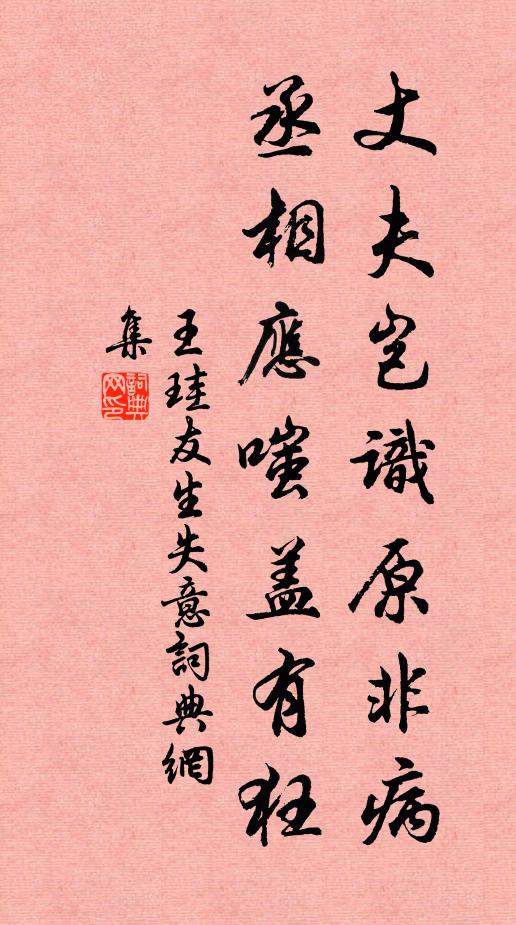 丈夫岂識原非病
丞相應嗤盖有狂
王珪友生失意詞典網
集
詞典網印